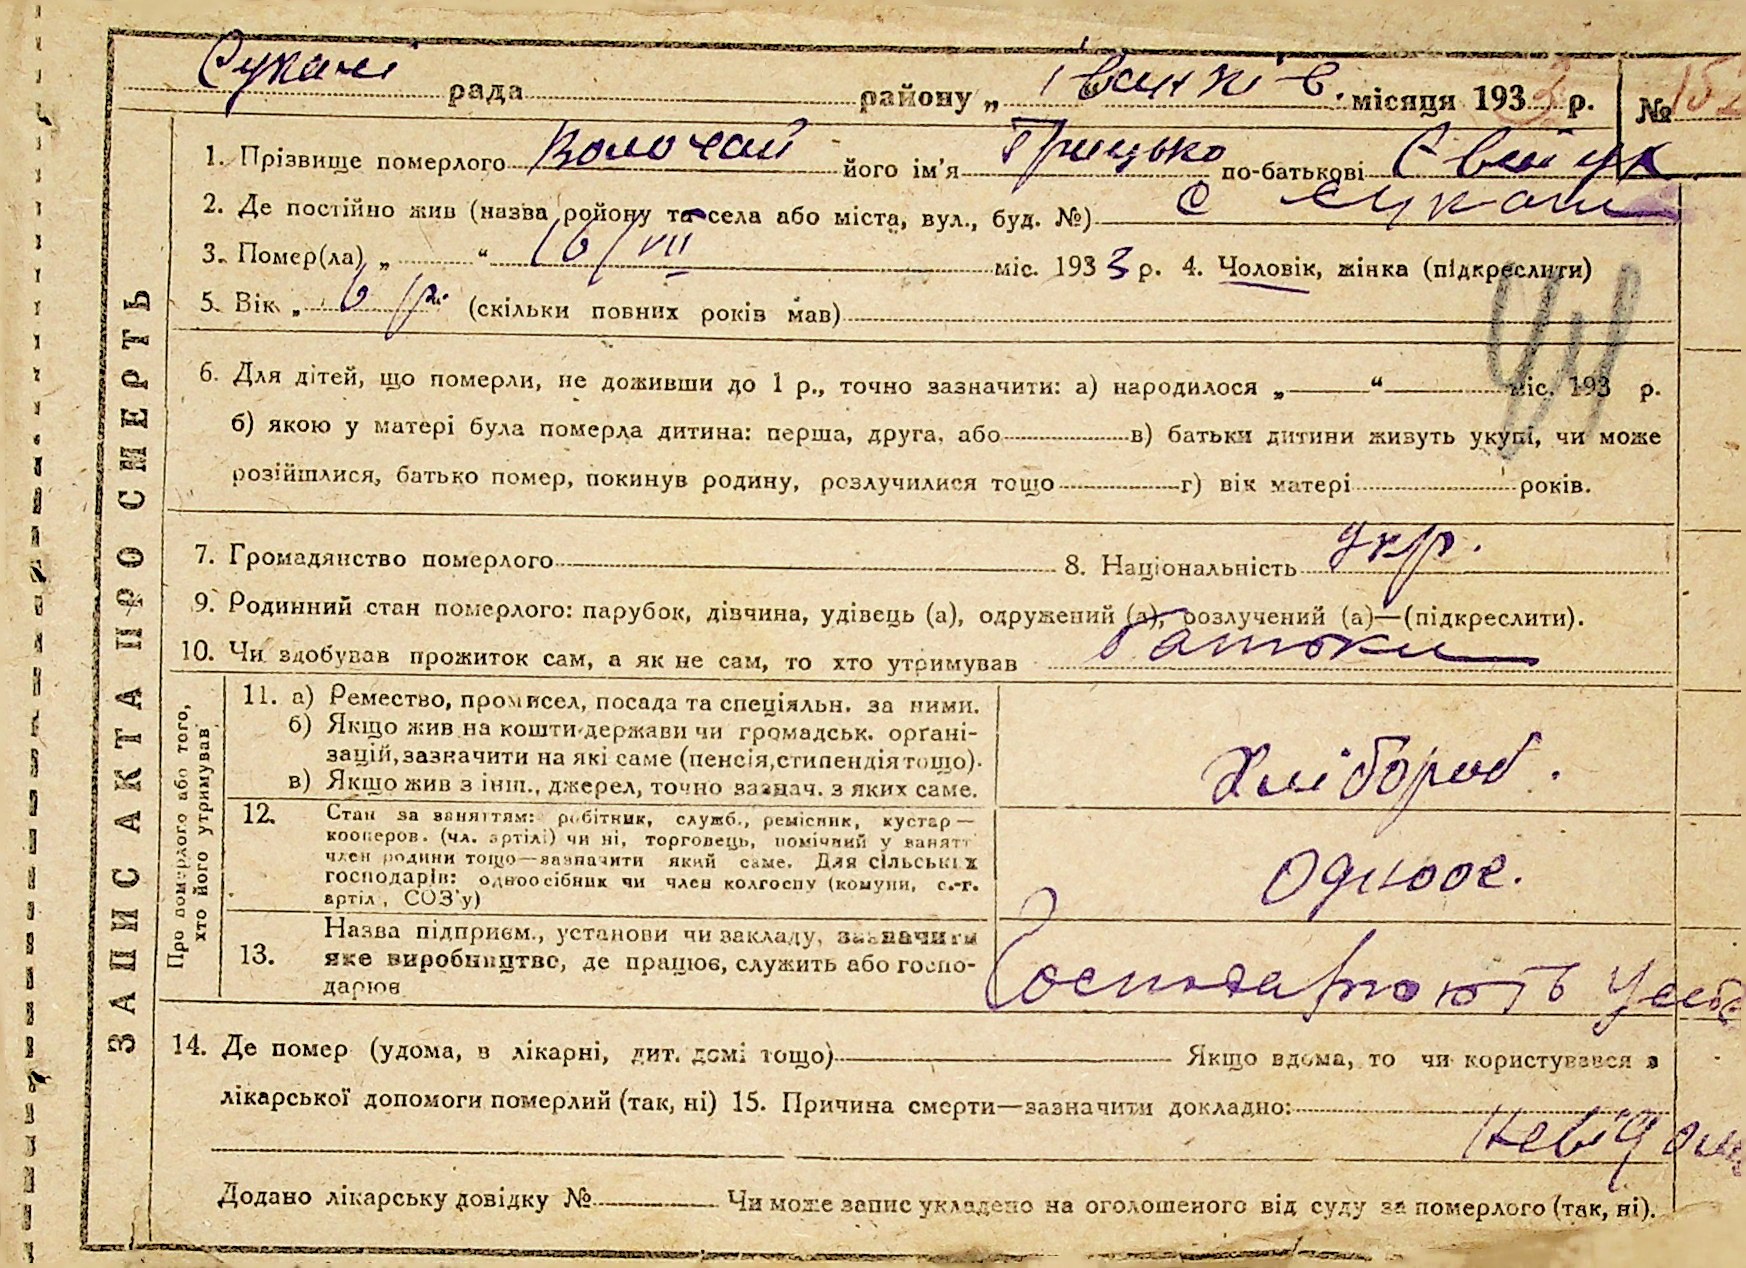 Сукачі рада району „ Іванків. місяця 1933 р. № 152
1. Прізвище померлого Волочай його ім'я Грицько по-батькові
2. Де постійно жив (назва ройону та села або міста, вул., буд. №) с Сукачі
3. Помер(ла) „ “ 16/VII міс. 1933 р. 4. Чоловік, жінка (підкреслити)
5. Вік „ 6 р. (скільки повних років мав)
6. Для дітей, що померли, не доживши до 1 р., точно зазначити: а) народилося „ “ міс. 193 р.
б) якою у матері була померла дитина: перша, друга, або в) батьки дитини живуть укупі, чи може
розійшлися, батько помер, покинув родину, розлучилися тощо г) вік матері років.
7. Громадянство померлого 8. Національність укр.
9. Родинний стан померлого: парубок, дівчина, удівець (а), одружений (а), розлучений (а)—(підкреслити).
10. Чи здобував прожиток сам, а як не сам, то хто утримував батьки
ЗАПИС АКТА ПРО СМЕРТЬ
Про померлого або того,
хто його утримував
11. а) Ремество, промисел, посада та спеціяльн. за ними.
б) Якщо жив на кошти держави чи громадськ. орґані-
зацій, зазначити на які саме (пенсія, стипендія тощо).
в) Якщо жив з інш., джерел, точно зазнач. з яких саме.
Хлібороб.
12. Стан за заняттям: робітник, служб., ремісник, кустар—
кооперов. (чл. артілі) чи ні, торговець, помічний у занятт
член родини тощо—зазначити який саме. Для сільських
господарів: одноосібник чи член колгоспу (комуни, с.-г.
артіл, СОЗ'у)
Одноос.
13. Назва підприєм., установи чи закладу, зазначити
яке виробництво, де працює, служить або госпо-
дарює
Господарюють у себе
14. Де помер (удома, в лікарні, дит. домі тощо) Якщо вдома, то чи користувався з
лікарської допомоги померлий (так, ні) 15. Причина смерти—зазначити докладно:
невідома
Додано лікарську довідку № Чи може запис укладено на оголошеного від суду за померлого (так, ні).